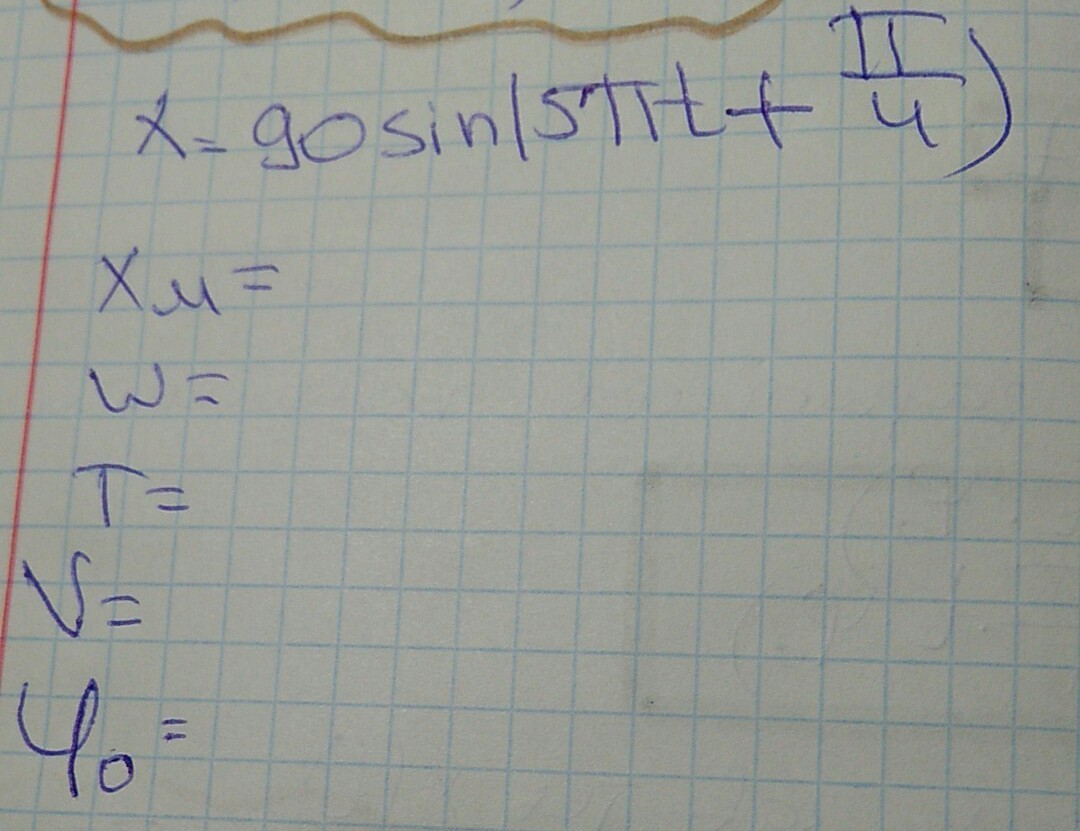 x = 90 sin(5πt + π/4)
xм =
ω =
T =
ν =
φ₀ =